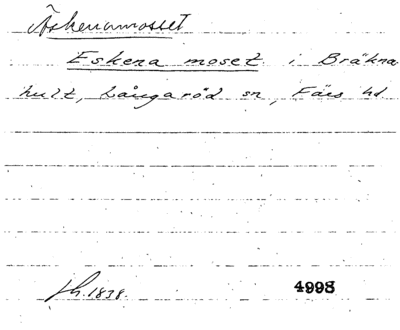 Äskenamosset
Eskena moset i Bräkna
hult, Långaröd sn, Färs hd
1838.
4998